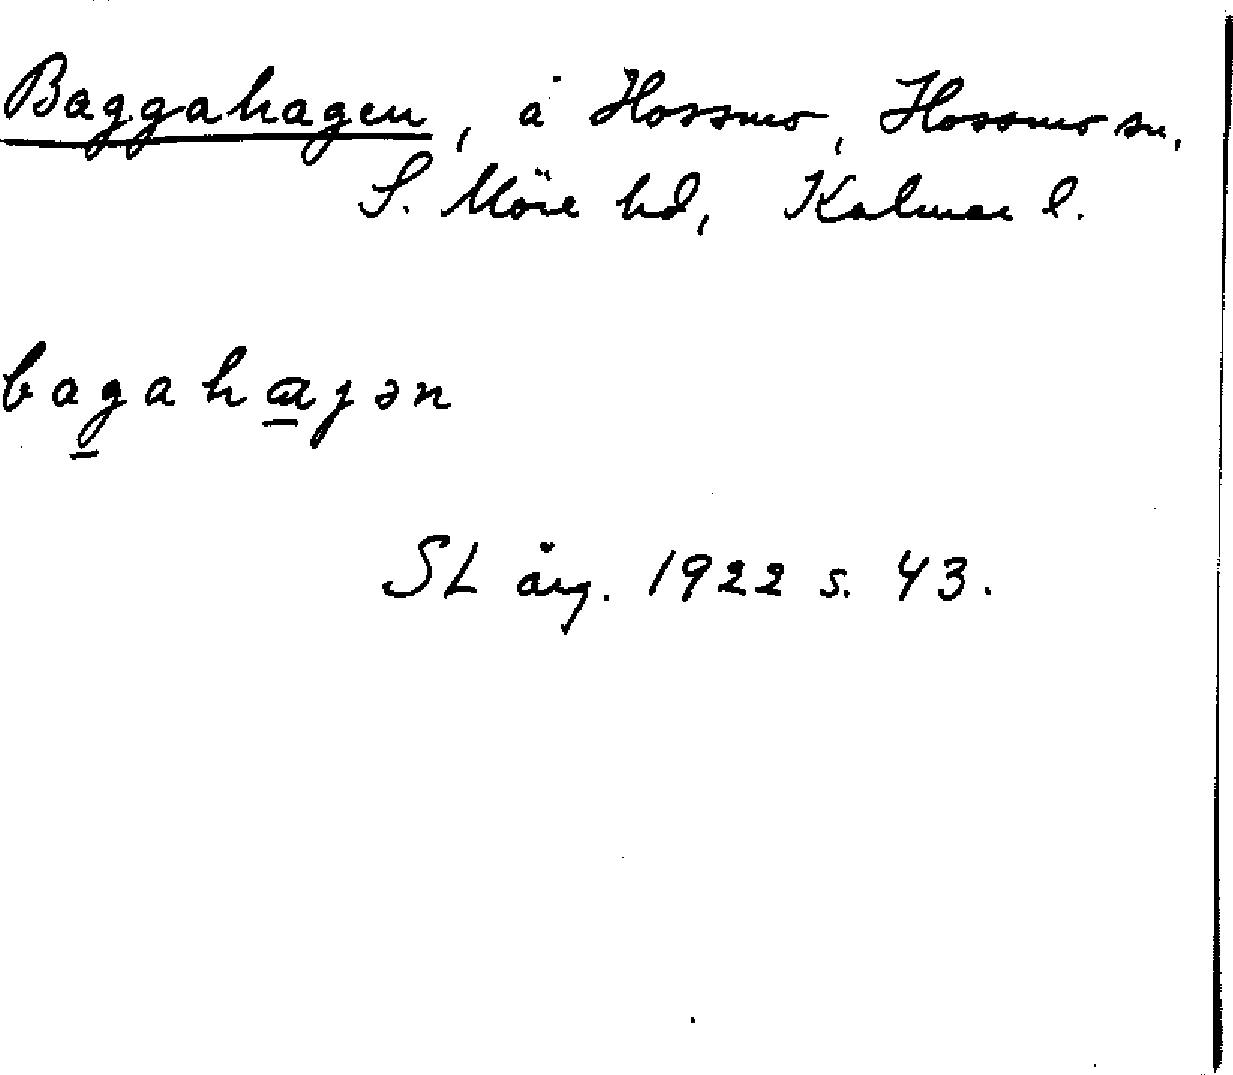 Baggahagen, å Hossmo, Hossmo sn,
S. Möre hd, Kalmar l.
bagahaɡən
SL årg. 1922 s. 43.